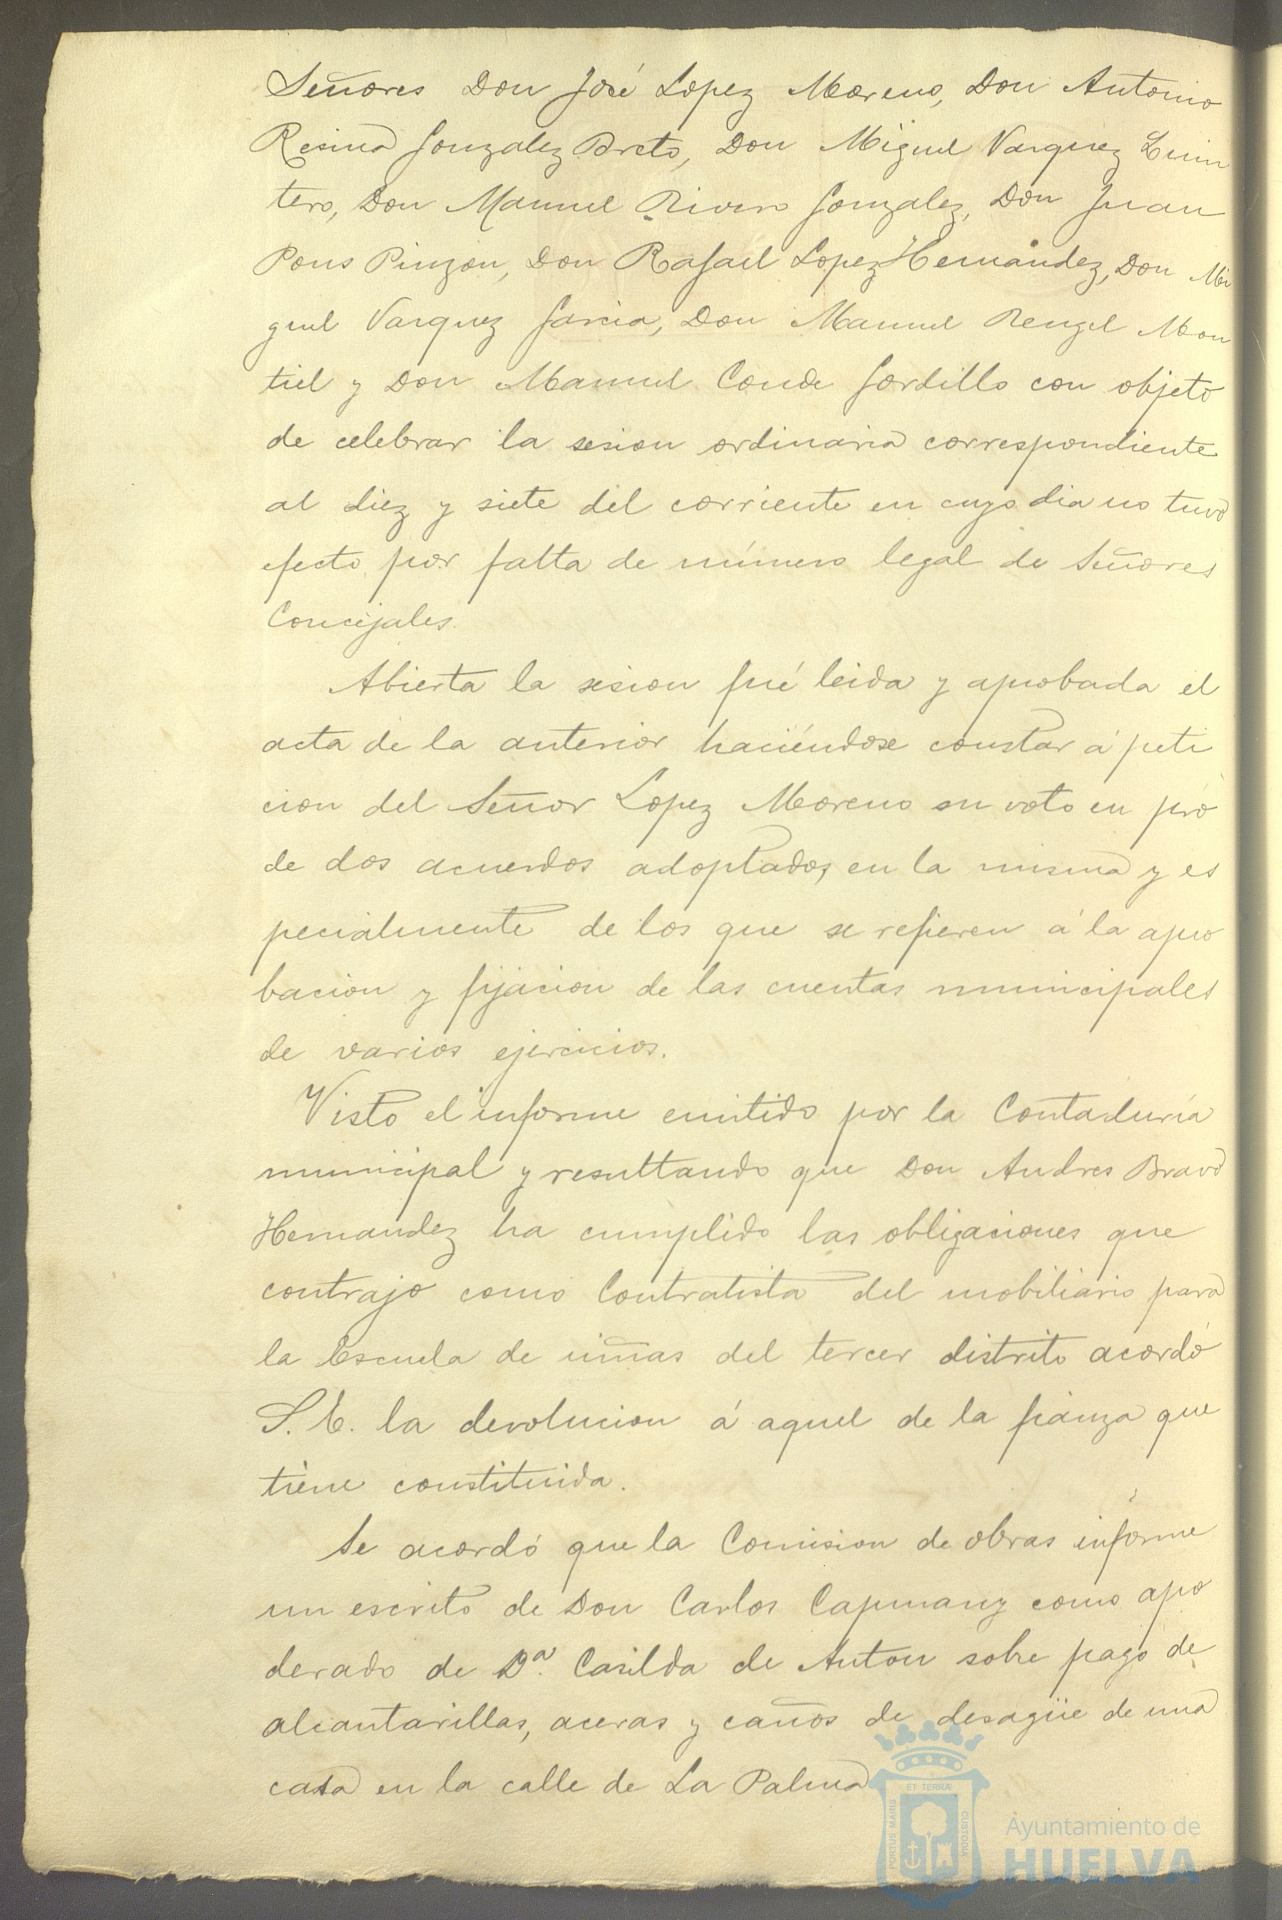 Señores Don José Lopez Moreno, Don Antonio
Resina Gonzalez Breto, Don Miguel Vazquez Quin
tero, Don Manuel Rivero Gonzalez, Don Juan
Pons Pinzon, Don Rafael Lopez Hernández, Don Mi
guel Vazquez Garcia, Don Manuel Rengel Mon
tiel y Don Manuel Conde Gordillo con objeto
de celebrar la sesion ordinaria correspondiente
al diez y siete del corriente en cuyo dia no tuvo
efecto por falta de número legal de Señores
Concejales.
Abierta la sesion fué leida y aprobada el
acta de la anterior haciéndose constar á peti
cion del Señor Lopez Moreno su voto en pró
de dos acuerdos adoptados en la misma y es
pecialmente de los que se refieren á la apro
bacion y fijacion de las cuentas municipales
de varios ejercicios.
Visto el informe emitido por la Contaduría
municipal y resultando que Don Andres Bravo
Hernandez ha cumplido las obligaciones que
contrajo como Contratista del mobiliario para
la Escuela de niñas del tercer distrito acordó
S. E. la devolucion á aquel de la fianza que
tiene constituida.
Se acordó que la Comision de obras informe
un escrito de Don Carlos Capmany como apo
derado de Dª. Casilda de Anton sobre pago de
alcantarillas, aceras y caños de desagüe de una
casa en la calle de La Palma
PORTUS MARIS
ET TERRÆ
CUSTODIA
Ayuntamiento de
HUELVA